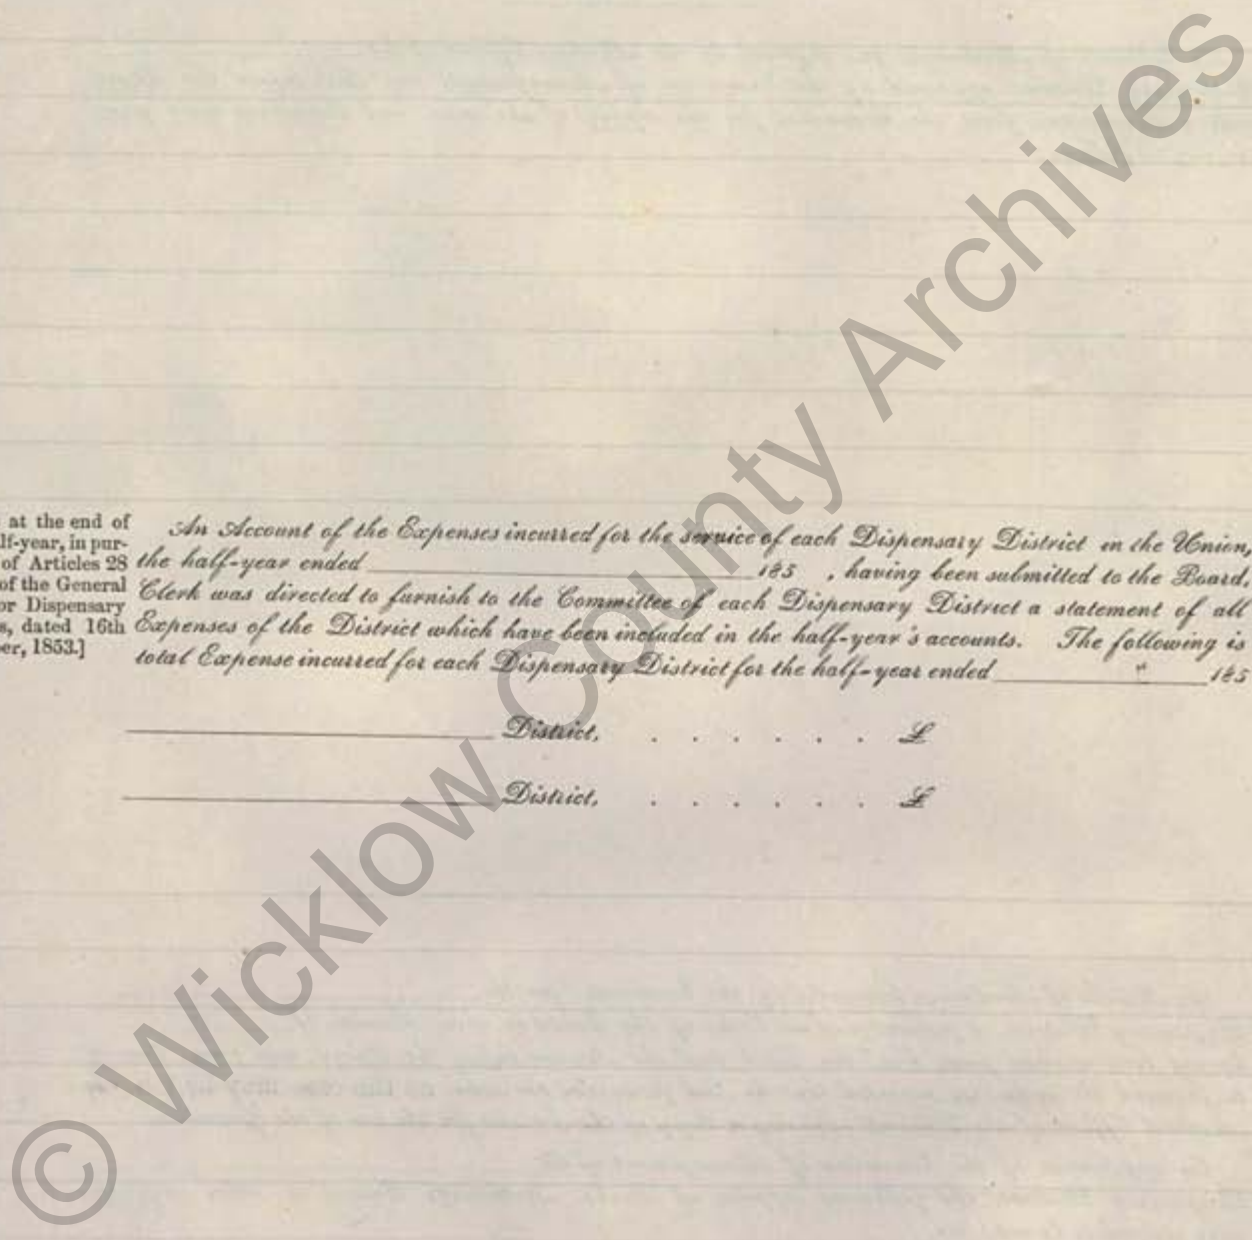 at the end of
lf-year, in pur-
of Articles 28
of the General
or Dispensary
s, dated 16th
er, 1853.]
An Account of the Expenses incurred for the service of each Dispensary District in the Union,
the half-year ended 185 , having been submitted to the Board,
Clerk was directed to furnish to the Committee of each Dispensary District a statement of all
Expenses of the District which have been included in the half-year's accounts. The following is
total Expense incurred for each Dispensary District for the half-year ended 185
District, . . . . . . £
District, . . . . . . £
© Wicklow County Archives